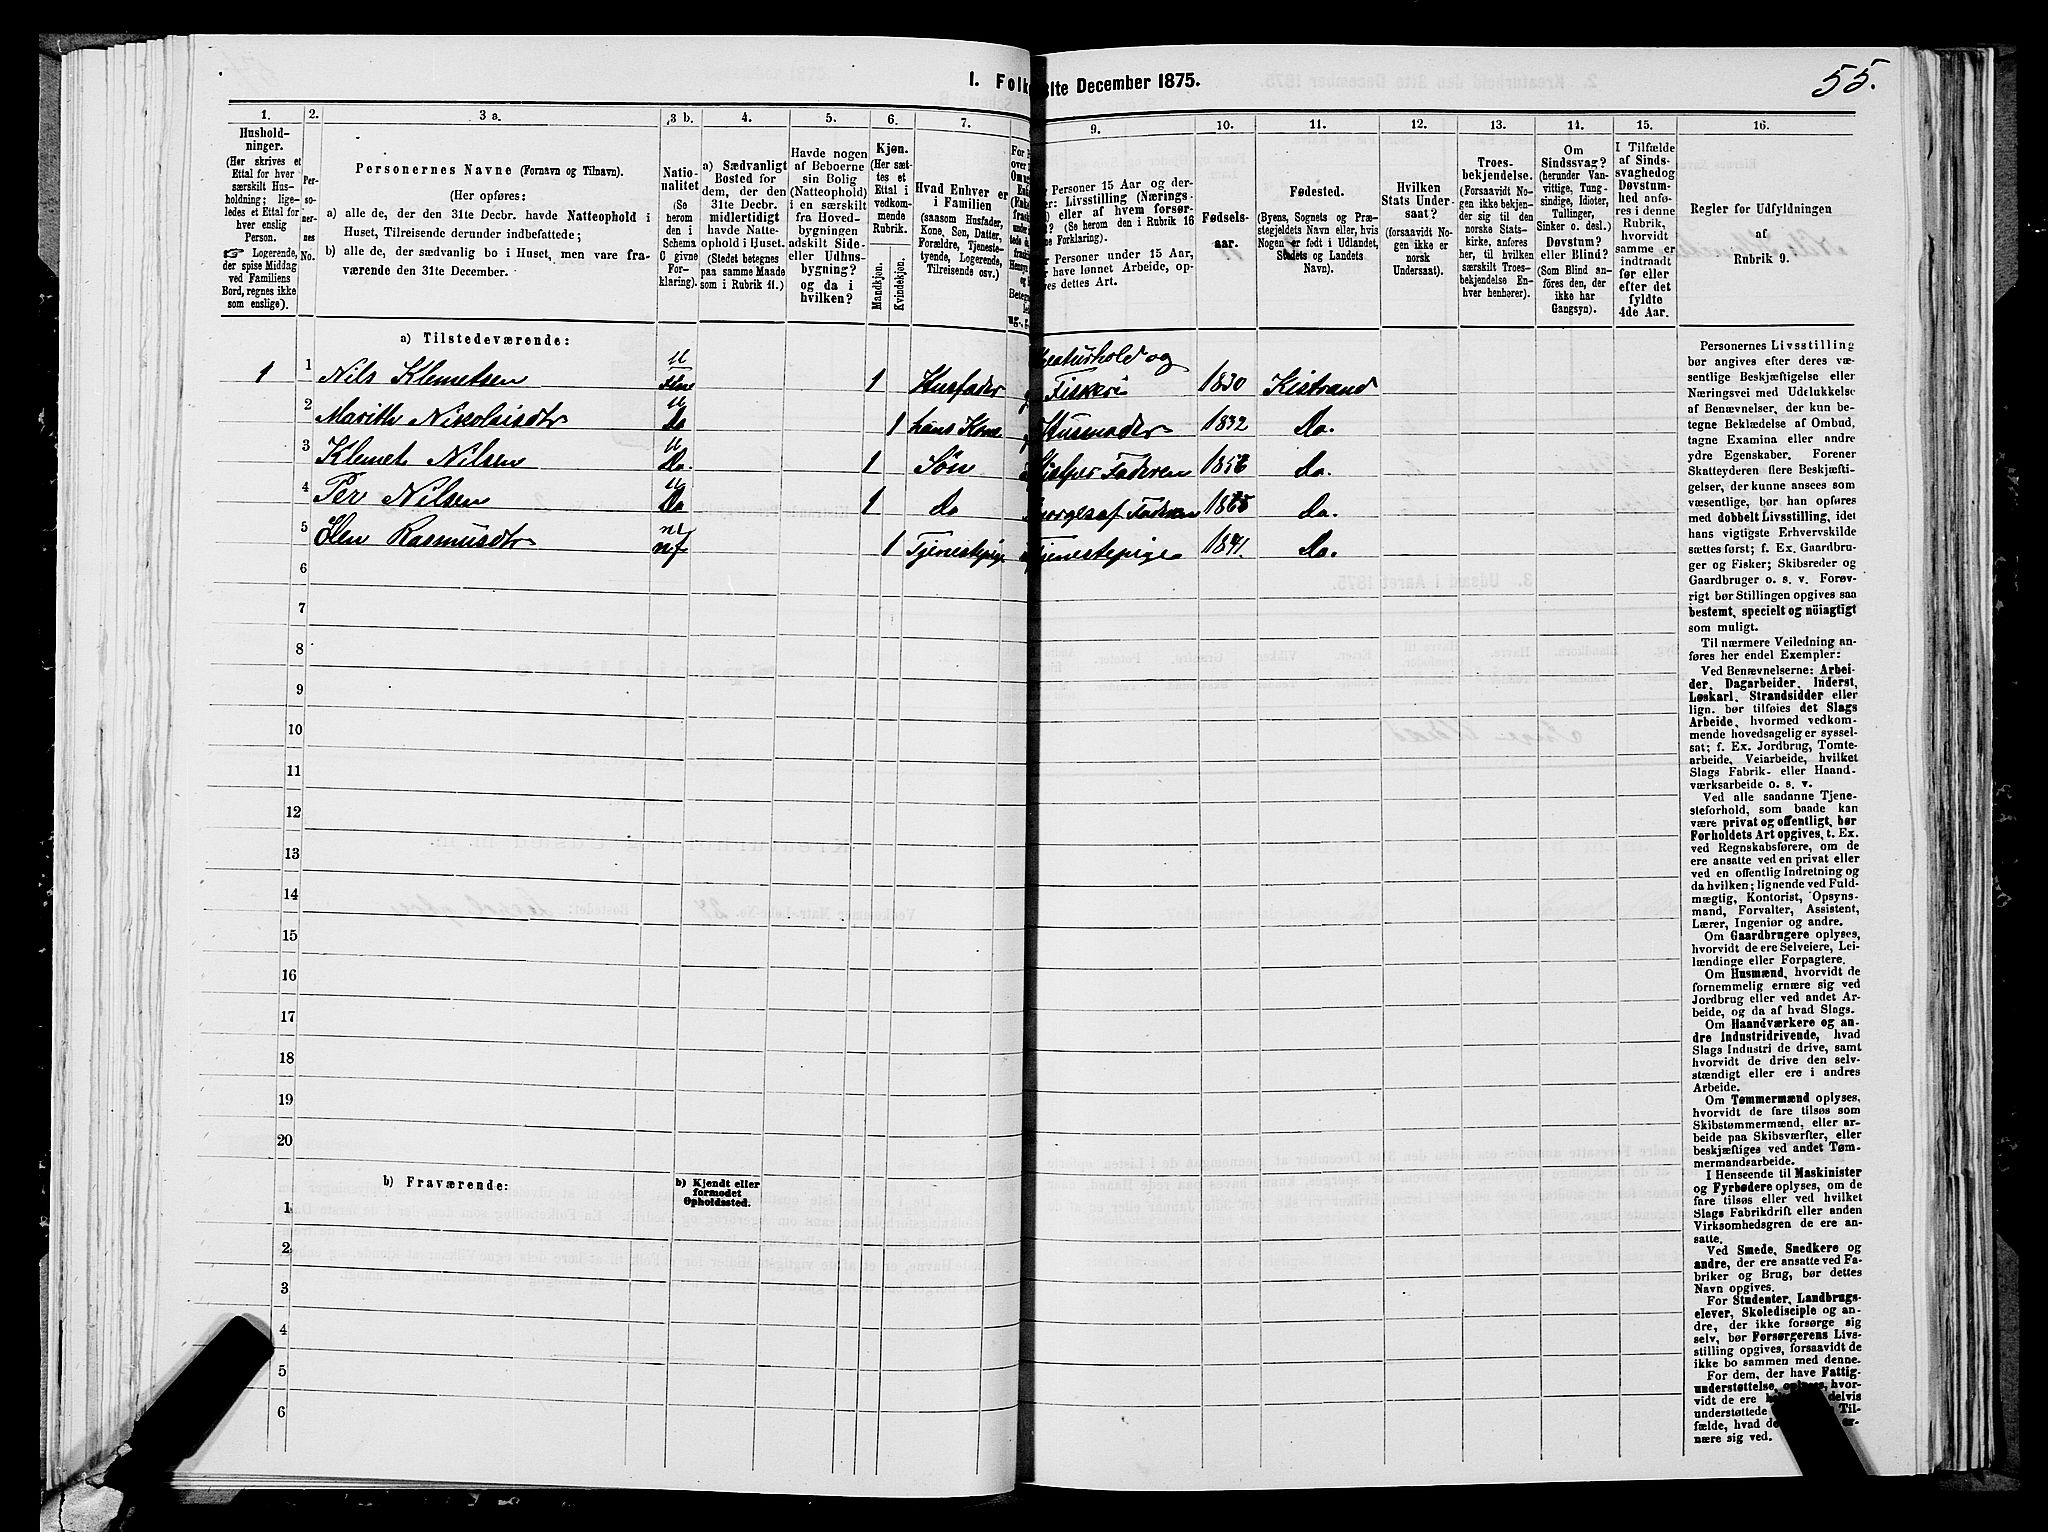 55.
I. Folk
31te December 1875.
1.
2.
3 a.
3 b.
4.
5.
6.
7.
9.
10.
11.
12.
13.
14.
15.
16.
Hushold-
ninger.
(Her skrives et
Ettal for hver
særskilt Hus-
holdning; lige-
ledes et Ettal for
hver enslig
Person.
☞ Logerende,
der spise Middag
ved Familiens
Bord, regnes ikke
som enslige).
Per-
so-
ner-
nes
No.
Personernes Navne (Fornavn og Tilnavn).
(Her opføres:
a) alle de, der den 31te Decbr. havde Natteophold i
Huset, Tilreisende derunder indbefattede;
b) alle de, der sædvanlig bo i Huset, men vare fra-
værende den 31te December.
Natio-
nalitet
(Se
herom
den i
Schema
C givne
For-
klaring).
a) Sædvanligt
Bosted for
dem, der den
31te Decbr.
midlertidigt
havde Natte-
ophold i Huset.
(Stedet betegnes
paa samme Maade
som i Rubrik 11.)
Havde nogen
af Beboerne
sin Bolig
(Natteophold)
i en særskilt
fra Hoved-
bygningen
adskilt Side-
eller Udhus-
bygning?
og da i
hvilken?
Kjøn.
(Her sæt-
tes et
Ettal i
vedkom-
mende
Rubrik.
Mandkjøn.
Kvindekjøn.
Hvad Enhver er
i Familien
(saasom Husfader,
Kone, Søn, Datter,
Forældre, Tjeneste-
tyende, Logerende,
Tilreisende osv.)
r Personer 15 Aar og der-
er: Livsstilling (Nærings-
) eller af hvem forsør-
? (Se herom den i Rubrik 16
ne Forklaring).
Personer under 15 Aar,
have lønnet Arbeide, op-
res dettes Art.
Fødsels-
aar.
Fødested.
(Byens, Sognets og Præ-
stegjeldets Navn eller, hvis
Nogen er født i Udlandet,
Stedets og Landets
Navn).
Hvilken
Stats Under-
saat?
(forsaavidt No-
gen ikke er
norsk
Undersaat).
Troes-
bekjendelse.
(Forsaavidt No-
gen ikke bekjen-
der sig til den
norske Stats-
kirke, anføres
her, til hvilken
særskilt Troes-
bekjendelse En-
hver henhører).
Om
Sindssvag?
(herunder Van-
vittige, Tung-
sindige, Idioter,
Tullinger,
Sinker o. desl.)
Døvstum?
eller Blind?
(Som Blind an-
føres den, der
ikke har
Gangsyn).
I Tilfælde
af Sinds-
svaghedog
Døvstum-
hed anfø-
res i denne
Rubrik,
hvorvidt
samme er
indtraadt
før eller
efter det
fyldte
4de Aar.
Regler for Udfyldningen
af
Rubrik 9.
a) Tilstedeværende:
1 1 Nils Klemetsen 1 Husfader Kreaturhold og Fiskeri 1830 Kistrand
2 Marith Nikolaisdtr Do 1 hans Kone Husmoder 1832 Do.
3 Klemet Nilsen Do. 1 Søn Hjelper Faderen 1856 Do.
4 Per Nilsen Do 1 Do Sørges af Faderen Do.
5 Elen Rasmusdtr nf 1 Tjenestepige Tjenestepige 1841. Do.
6
7
8
9
10
11
12
13
14
15
16
17
18
19
20
b) Fraværende:
b) Kjendt eller
formodet
Opholdssted.
1
2
3
4
5
6
Personernes Livsstilling
bør angives efter deres væ-
sentlige Beskjæftigelse eller
Næringsvei med Udelukkelse
af Benævnelser, der kun be-
tegne Beklædelse af Ombud,
tagne Examina eller andre
ydre Egenskaber. Forener
Skatteyderen flere Beskjæfti-
gelser, der kunne ansees som
væsentlige, bør han opføres
med dobbelt Livsstilling, idet
hans vigtigste Erhvervskilde
sættes først; f. Ex. Gaardbru-
ger og Fisker; Skibsreder og
Gaardbruger o. s. v. Forøv-
rigt bør Stillingen opgives saa
bestemt, specielt og nöiagtigt
som muligt.
Til nærmere Veiledning an-
føres her endel Exempler:
Ved Benævnelserne: Arbei-
der, Dagarbeider, Inderst,
Løskarl, Strandsidder eller
lign. bør tilføies det Slags
Arbeide, hvormed vedkom-
mende hovedsagelig er syssel-
sat; f. Ex. Jordbrug, Tomte-
arbeide, Veiarbeide, hvilket
Slags Fabrik- eller Haand-
værksarbeide o. s. v.
Ved alle saadanne Tjene-
steforhold, som baade kan
være privat og offentligt, bør
Forholdets Art opgives, t. Ex.
ved Regnskabsførere, om de
ere ansatte ved en privat eller
ved en offentlig Indretning og
da hvilken; lignende ved Fuld-
mægtig, Kontorist, Opsyns-
mand, Forvalter, Assistent,
Lærer, Ingeniør og andre.
Om Gaardbrugere oplyses,
hvorvidt de ere Selveiere, Lei-
lændinge eller Forpagtere.
Om Husmænd, hvorvidt de
fornemmelig ernære sig ved
Jordbrug eller ved andet Ar-
beide, og da af hvad Slags.
Om Haandværkere og an-
dre Industridrivende, hvad
Slags Industri de drive, samt
hvorvidt de drive den selv-
stændigt eller ere i andres
Arbeide.
Om Tømmermænd oplyses,
hvorvidt de fare tilsøs som
Skibstømmermænd, eller ar-
beide paa Skibsværfter, eller
beskjæftiges ved andet Tøm-
mermandsarbeide.
I Henseende til Maskinister
og Fyrbødere oplyses, om de
fare tilsøs eller ved hvilket
Slags Fabrikdrift eller anden
Virksomhedsgren de ere an-
satte.
Ved Smede, Snedkere og
andre, der ere ansatte ved Fa-
briker og Brug, bør dettes
Navn opgives.
For Studenter, Landbrugs-
elever, Skoledisciple og an-
dre, der ikke forsørge sig
selv, bør Forsørgerens Livs-
stilling opgives, forsaavidt de
ikke bo sammen med denne.
For dem, der have Fattig-
understøttelse, oplyses, hvor-
vidt de ere delvis
understøttede Til-
fælde, hvad de er-
nære sig ved.